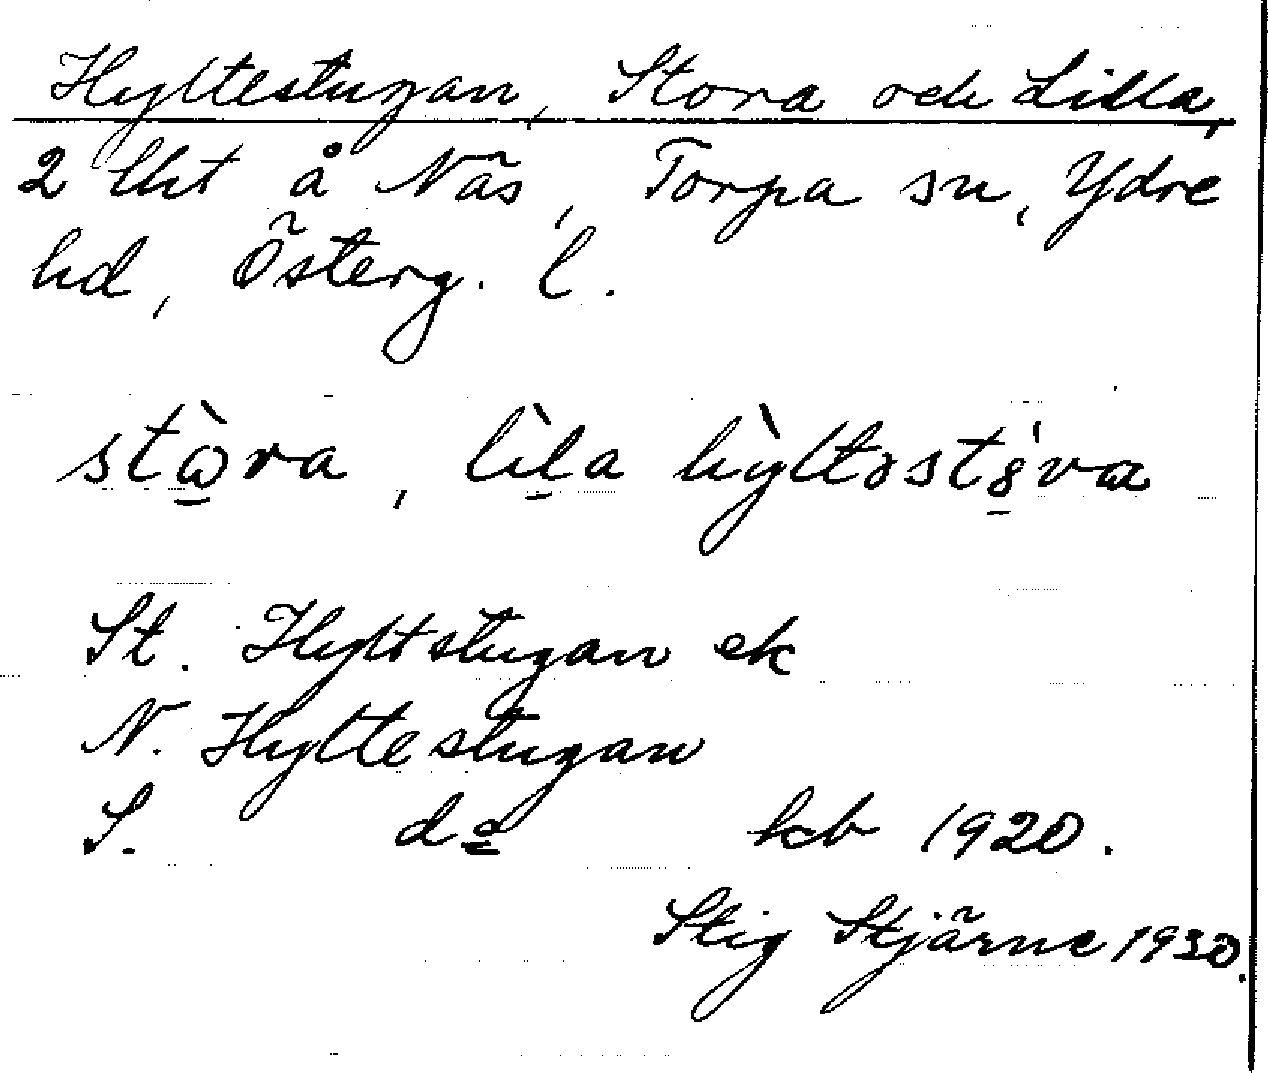 Hyltestugan, Stora och Lilla,
2 lht å Näs, Torpa sn, Ydre
hd, Österg. l.
stὼra, lìla hỳltəstȣ́va
St. Hyltstugan ek
N. Hyltestugan
S. do kb 1920.
Stig Stjärne 1930.